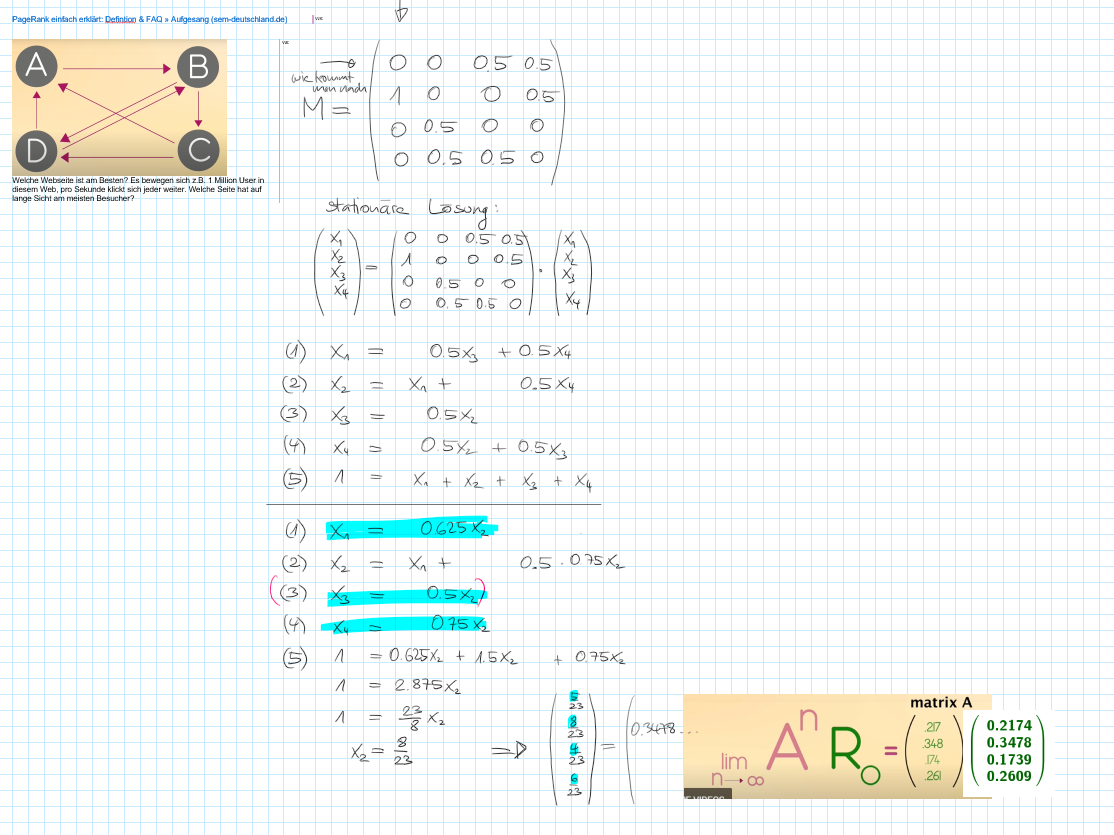 PageRank einfach erklärt: Defintion & FAQ » Aufgesang (sem-deutschland.de)
A B
D C
Welche Webseite ist am Besten? Es bewegen sich z.B. 1 Million User in
diesem Web, pro Sekunde klickt sich jeder weiter. Welche Seite hat auf
lange Sicht am meisten Besucher?
wie kommt
man nach
0 0 0.5 0.5
M = 1 0 0 0.5
0 0.5 0 0
0 0.5 0.5 0
stationäre Lösung:
x₁ 0 0 0.5 0.5 x₁
x₂ = 1 0 0 0.5 · x₂
x₃ 0 0.5 0 0 x₃
x₄ 0 0.5 0.5 0 x₄
(1) x₁ = 0.5x₃ + 0.5x₄
(2) x₂ = x₁ + 0.5x₄
(3) x₃ = 0.5x₂
(4) x₄ = 0.5x₂ + 0.5x₃
(5) 1 = x₁ + x₂ + x₃ + x₄
(1) x₁ = 0.625x₂
(2) x₂ = x₁ + 0.5 · 0.75x₂
((3) x₃ = 0.5x₂)
(4) x₄ = 0.75x₂
(5) 1 = 0.625x₂ + 1.5x₂ + 0.75x₂
1 = 2.875x₂
1 = 23/8 x₂
x₂ = 8/23 ⇒
5/23
8/23 = 0.3478...
4/23
6/23
matrix A
lim n→∞ Aⁿ R₀ =
.217 0.2174
.348 0.3478
.174 0.1739
.261 0.2609
E VIDEOS